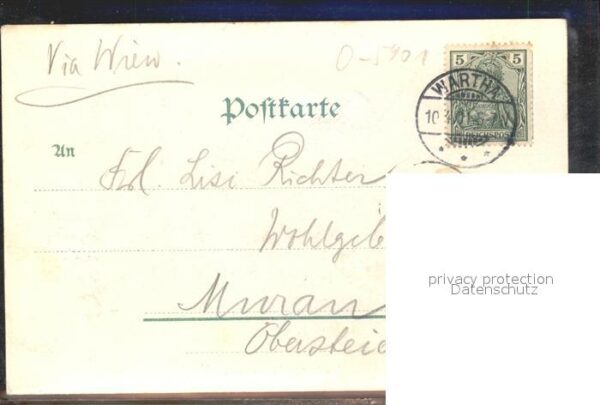 Via Wien.
O-5901
5 5
Postkarte
WARTHA
10.
REICHSPOST
An
Frl. Lisi Richter
Wohlgeb
Murau
Oberstei
privacy protection
Datenschutz